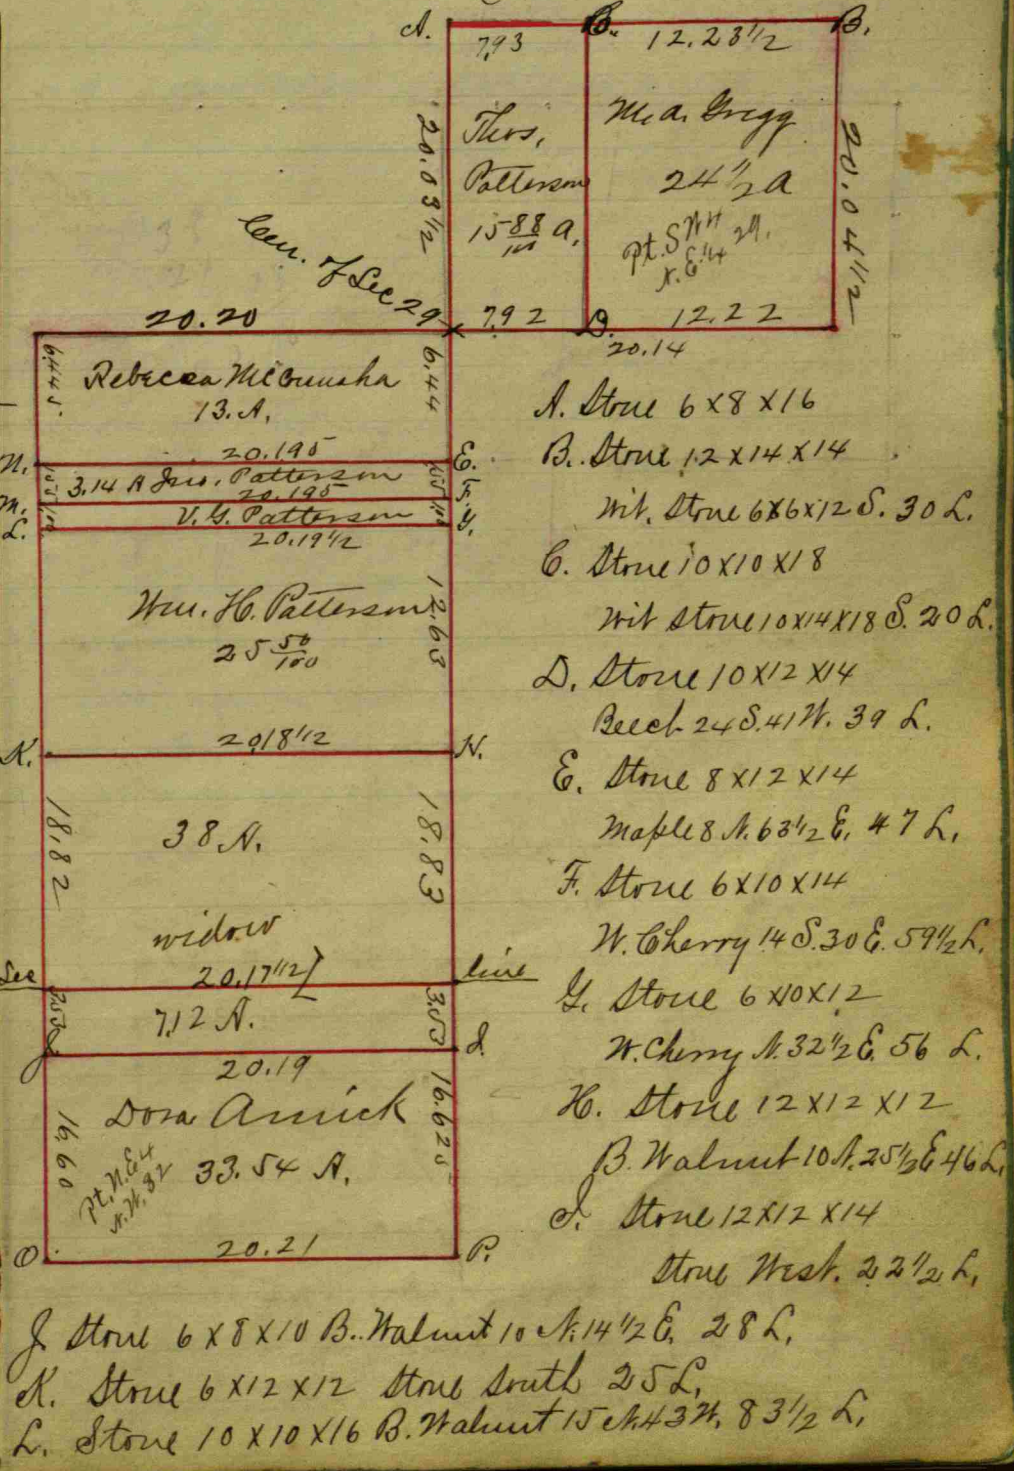 A. C. B.
7.93 12.23 1/2
20.03 1/2
Thos,
Patterson
15 88/100 A.
M. A. Gregg
24 1/2 A
Pt. S W 4
N. E. 1/4 29.
20.04 1/2
Cen. of Sec 29
20.20
7.92 D. 12.22
20.14
6.445
Rebecca
13. A.
6.44
20.195
N. E.
3.14 A Jno. Patterson
20.195
M. F.
V. G. Patterson
L. G.
20.19 1/2
Wm. H. Patterson
25 50/100
12.63
20.18 1/2
K. H.
18.82
38 A.
18.83
widow
20.17 1/2
Sec line
7.12 A.
3.53
J I.
20.19
Dora Amick
16.60
16.625
Pt. N. E. 4
N. W. 32
33.54 A.
O. 20.21 P.
A. Stone 6 x 8 x 16
B. Stone 12 x 14 x 14
Wit. Stone 6x6x12 S. 30 L.
C. Stone 10 x 10 x 18
Wit Stone 10 x 14 x 18 S. 20 L.
D. Stone 10 x 12 x 14
Beech 24 S. 41 W. 39 L.
E. Stone 8 x 12 x 14
Maple 8 N. 63 1/2 E. 47 L.
F. Stone 6 x 10 x 14
W. Cherry 14 S. 30 E. 59 1/2 L.
G. Stone 6 x 10 x 12
W. Cherry N. 32 1/2 E. 56 L.
H. Stone 12 x 12 x 12
B. Walnut 10 N. 25 1/2 E 46 L.
I. Stone 12 x 12 x 14
Stone West. 22 1/2 L.
J Stone 6 x 8 x 10 B. Walnut 10 N. 14 1/2 E. 28 L.
K. Stone 6 x 12 x 12 Stone South 25 L.
L. Stone 10 x 10 x 16 B. Walnut 15 N. 43 W. 83 1/2 L.